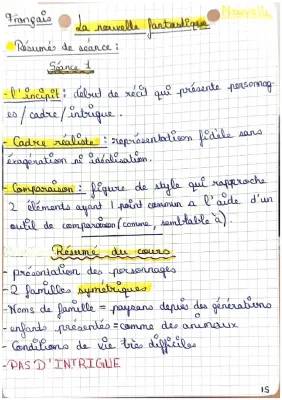 Français
Nouvelle
La nouvelle fantastique
Résumés de séance :
Séance 1
- l'incipit : début de récit qui présente personnag-
es / cadre / intrigue .
- Cadre réaliste : représentation fidèle sans
éxagération ni inéalisation .
- Comparaison : figure de style qui rapproche
2 éléments ayant 1 point commun a l'aide d'un
outil de comparaison (comme , semblable à) .
Résumé du cours
- présentation des personnages
- 2 familles symetriques
- Noms de famille = paysans depuis des générations
- enfants présentés = comme des animaux
- Conditions de vie très difficiles
- PAS D'INTRIGUE
15